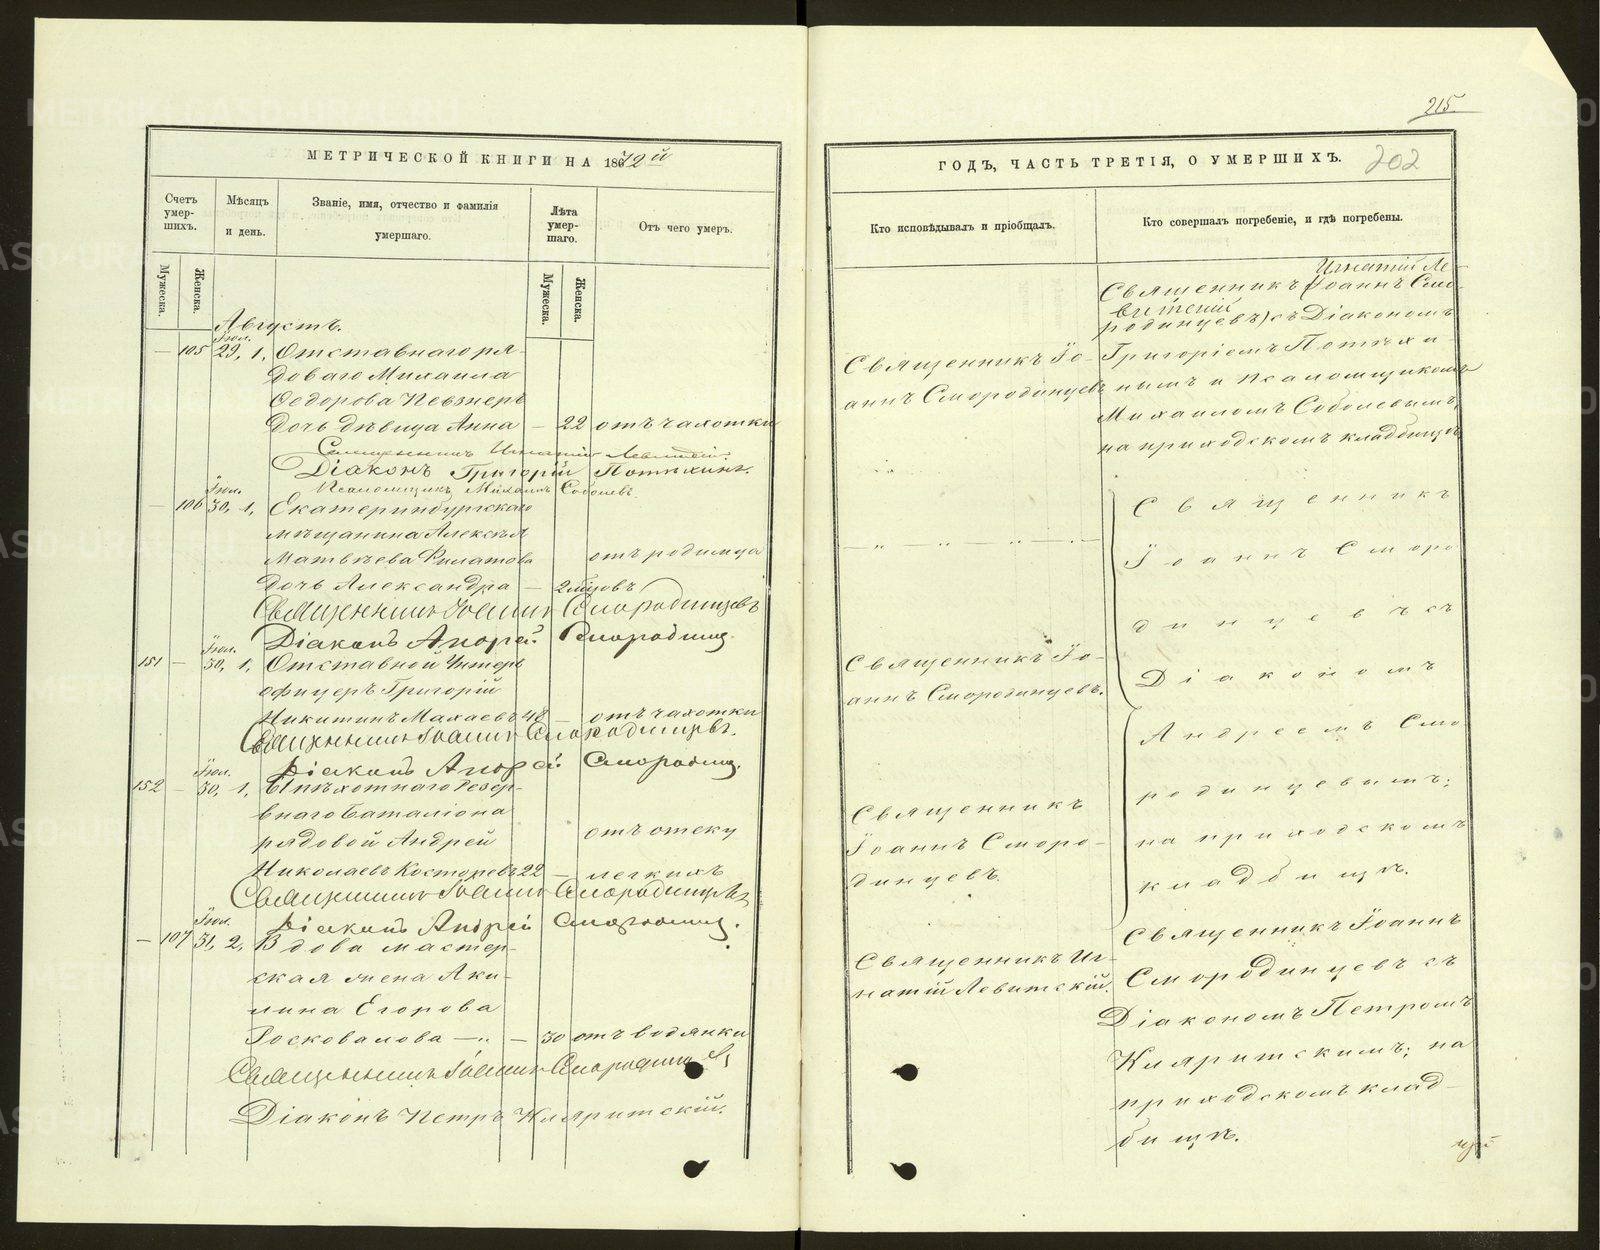 215
МЕТРИЧЕСКОЙ КНИГИ НА 1872й
ГОДЪ, ЧАСТЬ ТРЕТІЯ, О УМЕРШИХЪ.
202
Счетъ умер-шихъ.
Мѣсяцъ и день.
Званіе, имя, отчество и фамилія умершаго.
Лѣта умер-шаго.
Отъ чего умеръ.
Мужеска.
Женска.
Мужеска.
Женска.
Августъ.
Іюл.
— 105 29, 1, Отставнаго ря-
доваго Михаила
Ѳедорова Певзнеръ
Дочь дѣвица Анна — 22 отъ чахотки
Священникъ Игнатій Левитскій.
Діаконъ Григорій Потѣхинъ.
Псаломщикъ Михаилъ Соболевъ.
Іюл.
— 106 30, 1, Екатеринбургскаго
мѣщанина Алексѣя
Матвѣева Филатова отъ родимца
дочь Александра — 2 мѣсѣ
Священникъ Іоаннъ Смородинцевъ
Діаконъ Андрей Смородинц.
Іюл.
151 — 30, 1, Отставной Унтеръ
офицеръ Григорій
Никитинъ Махаевъ 48 — отъ чахотки
Священникъ Іоаннъ Смородинцевъ.
Діаконъ Андрей Смородинц.
Іюл.
152 — 30, 1, Пѣхотнаго Резер-
внаго баталіона
рядовой Андрей отъ отеку
Николаевъ Косторевъ 22 — легкихъ
Священникъ Іоаннъ Смородинцевъ
Діаконъ Андрей Смородинц.
Іюл.
— 107 31, 2, Вдова мастер-
ская жена Аки-
лина Егорова
Росковалова — „ — 30 отъ водянки
Священникъ Іоаннъ Смородинцевъ
Діаконъ Петръ Кляритскій.
Кто исповѣдывалъ и пріобщалъ.
Священникъ Іо-
аннъ Смородинцевъ
— „ „ — „ —
Священникъ Іо-
аннъ Смородинцевъ.
Священникъ
Іоаннъ Сморо-
динцевъ.
Священникъ Иг-
натій Левитскій.
Кто совершалъ погребеніе, и гдѣ погребены.
Игнатій Ле-
Священникъ (Іоаннъ Смо-
витскій
родинцевъ) съ Діакономъ
Григоріемъ Потѣхи-
нымъ и псаломщикомъ
Михаиломъ Соболевымъ,
на приходскомъ кладбищѣ
Священникъ
Іоаннъ Сморо
динцевъ съ
Діакономъ
Андреемъ Смо
родинцевымъ;
на приходскомъ
кладбищѣ.
Священникъ Іоаннъ
Смородинцевъ съ
Діакономъ Петромъ
Кляритскимъ; на
приходскомъ клад-
бищѣ.